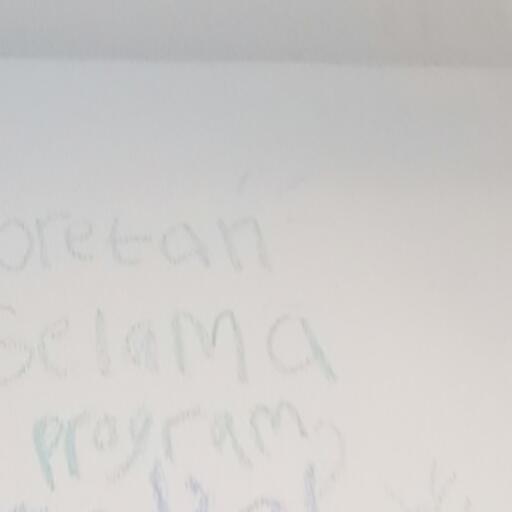 oretan
selama
program